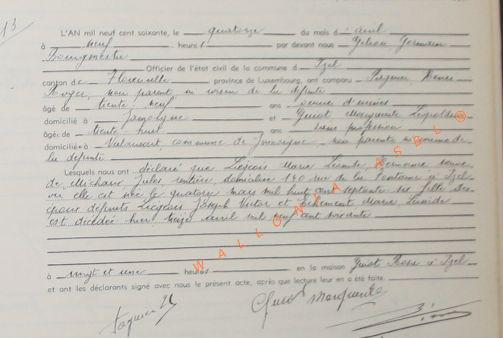 13
L'AN mil neuf cent soixante, le quatorze du mois d'avril
à neuf heures par devant nous Gilson Germain
Bourgmestre
Officier de l'état civil de la commune d Izel
canton de Florenville province de Luxembourg, ont comparu Paquer
Roger, non parent en voisin de la défunte
âgé de trente neuf ans
domicilié à Jamoigne et Guiot Marguerite
âgée de trente huit ans sans profession
domiciliée à Valansart, commune de Jamoigne, non parente
la défunte
Lesquels nous ont déclaré que Liégeois Marie veuve
de Michaux Jules, rentière, domiciliée 140 rue de la Fontaine à Izel
où elle est née le quatorze mars mil huit cent septante six fille des
époux défunts Liégeois Joseph Victor et Marie
est décédée hier treize avril mil neuf cent soixante
à vingt et une heures en la maison Guiot à Izel
et ont les déclarants signé avec nous le présent acte, après que lecture leur en a été faite.
Guiot Marguerite
WALLONIA ASBL ®